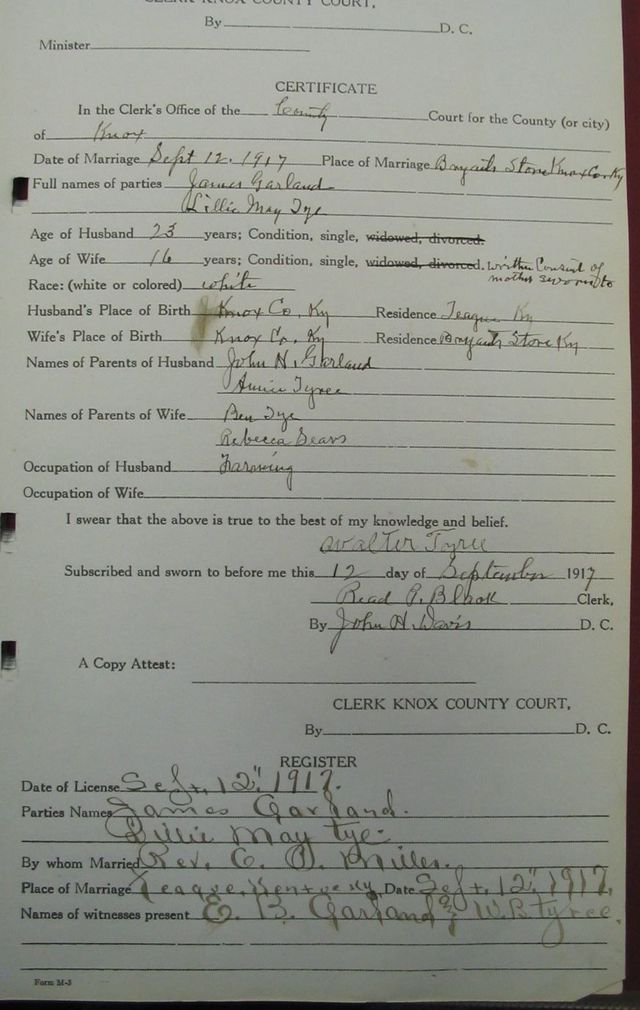 CLERK KNOX COUNTY COURT,
By D. C.
Minister
CERTIFICATE
In the Clerk's Office of the County Court for the County (or city)
of Knox
Date of Marriage Sept 12, 1917 Place of Marriage Store Knox Co. Ky
Full names of parties James Garland
Lillie May Tye
Age of Husband 23 years; Condition, single, widowed, divorced.
Age of Wife 16 years; Condition, single, widowed, divorced. written Consent of
mother sworn to
Race: (white or colored) white
Husband's Place of Birth Knox Co, Ky Residence Teague Ky
Wife's Place of Birth Knox Co, Ky Residence Store Ky
Names of Parents of Husband John H. Garland
Annie Tyree
Names of Parents of Wife Ben Tye
Rebecca Sears
Occupation of Husband Farming
Occupation of Wife
I swear that the above is true to the best of my knowledge and belief.
Walter Tyree
Subscribed and sworn to before me this 12 day of September 1917
Read P. Black Clerk,
By John H. Davis D. C.
A Copy Attest:
CLERK KNOX COUNTY COURT,
By D. C.
REGISTER
Date of License Sept, 12" 1917.
Parties Names James Garland.
Lillie May tye
By whom Married Rev. E. Miller.
Place of Marriage Teague, Kentucky, Date Sept, 12" 1917,
Names of witnesses present E. B. Garland & W. B. tyree.
Form M-3